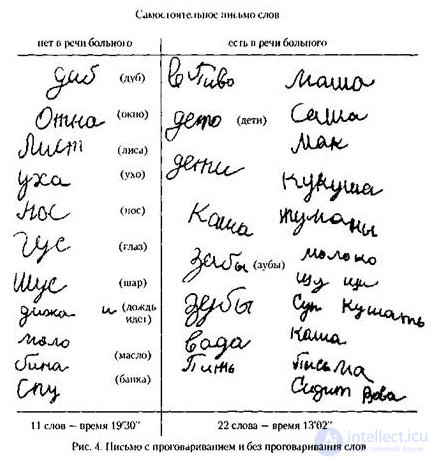 Самостоятельное письмо слов
нет в речи больного
есть в речи больного
диб (дуб)
Отна (окно)
Лист (лиса)
уха (ухо)
нос (нос)
Гус (глаз)
шус (шар)
дижа и (дождь идет)
мало (масло)
бина (банка)
Спу
в Пиво
дето (дети)
дети
Каша
зебы (зубы)
зубы
вада
Пить
Маша
Саша
Мак
Кукуша
молоко
щу щи
Суп кушать
каша
Письма
Сидит Вова
11 слов – время 19'30"
22 слова – время 13'02"
Рис. 4. Письмо с проговариванием и без проговаривания слов
intellect.icu